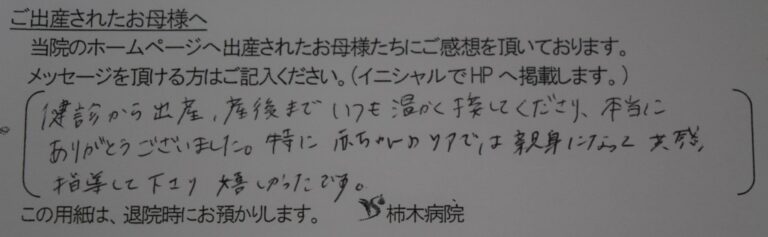 ご出産されたお母様へ
当院のホームページへ出産されたお母様たちにご感想を頂いております。
メッセージを頂ける方はご記入ください。(イニシャルでHPへ掲載します。)
健診から出産、産後まで いつも温かく接してくださり、本当に
ありがとうございました。特に 赤ちゃんのケアでは 親身になって 共感、
指導して下さり 嬉しかったです。
この用紙は、退院時にお預かりします。 柿木病院